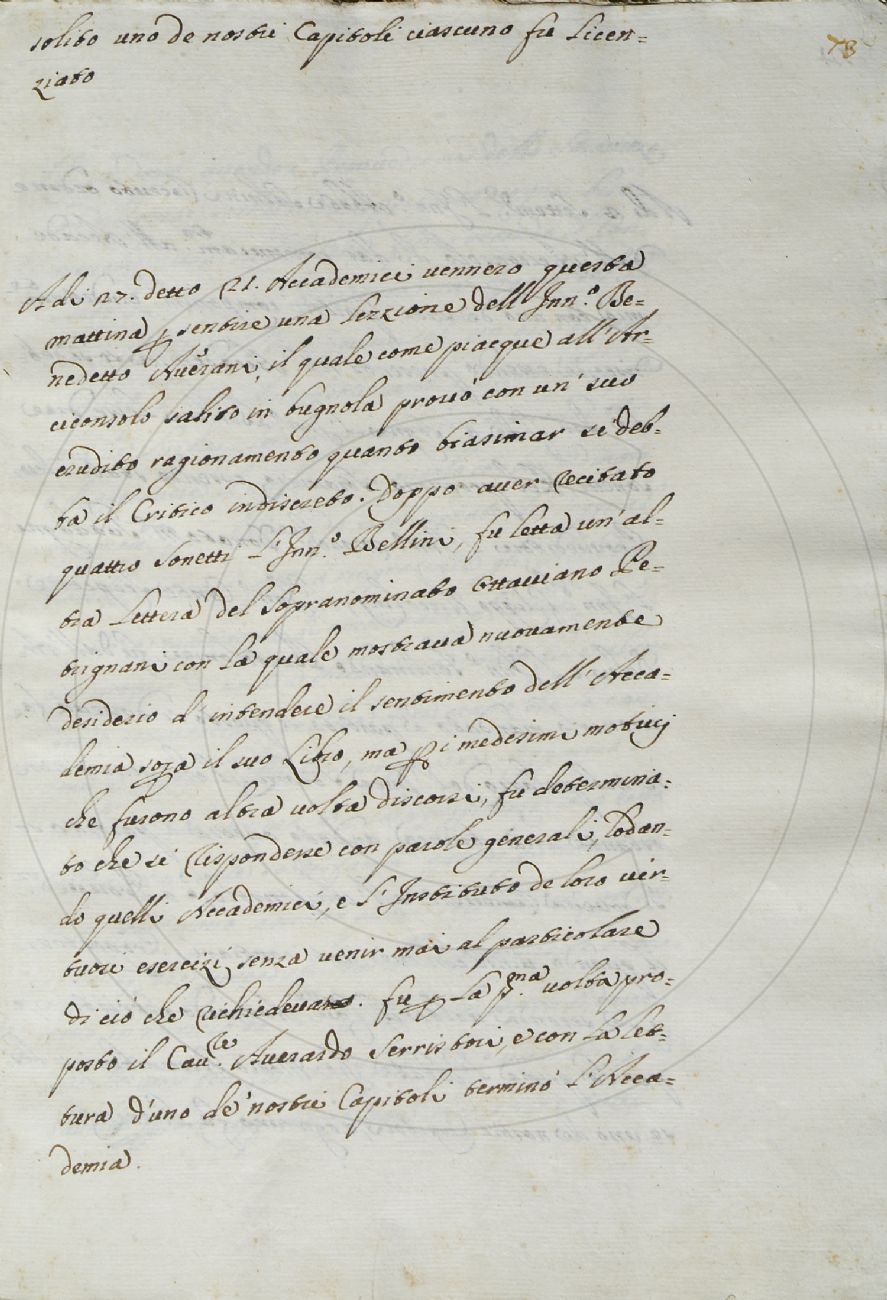 78
solito uno de nostri Capitoli ciascuno fu Licen=
ziato
A di 27. detto 21. Accademici vennero questa
mattina p sentire una Lezzione dell' Inn.º Be=
nedetto Averani, il quale come piacque all' Ar=
ciconsolo salito in bugnola provò con un' suo
erudito ragionamento quanto biasimar si deb=
ba il Critico indiscreto. Doppo aver recitato
quattro Sonetti L' Inn.º Bellini, fu letta un' al=
tra Lettera del Sopranominato Ottaviano Pe=
trignani con La quale mostrava nuovamente
desiderio d' intendere il sentimento dell' Acca=
demia sopra il suo Libro, ma p i medesimi motivi
che furono altra volta discorsi, fu determina=
to che si rispondesse con parole generali, Lodan=
do quelli Accademici, e L' Instituto de loro vir=
tuosi esercizi senza venir mai al particolare
di ciò che richiedeva. fu p La p.ma volta pro=
posto il Cav.re Averardo Serristori, e con La Let=
tura d'uno de' nostri Capitoli terminò L' Acca=
demia.